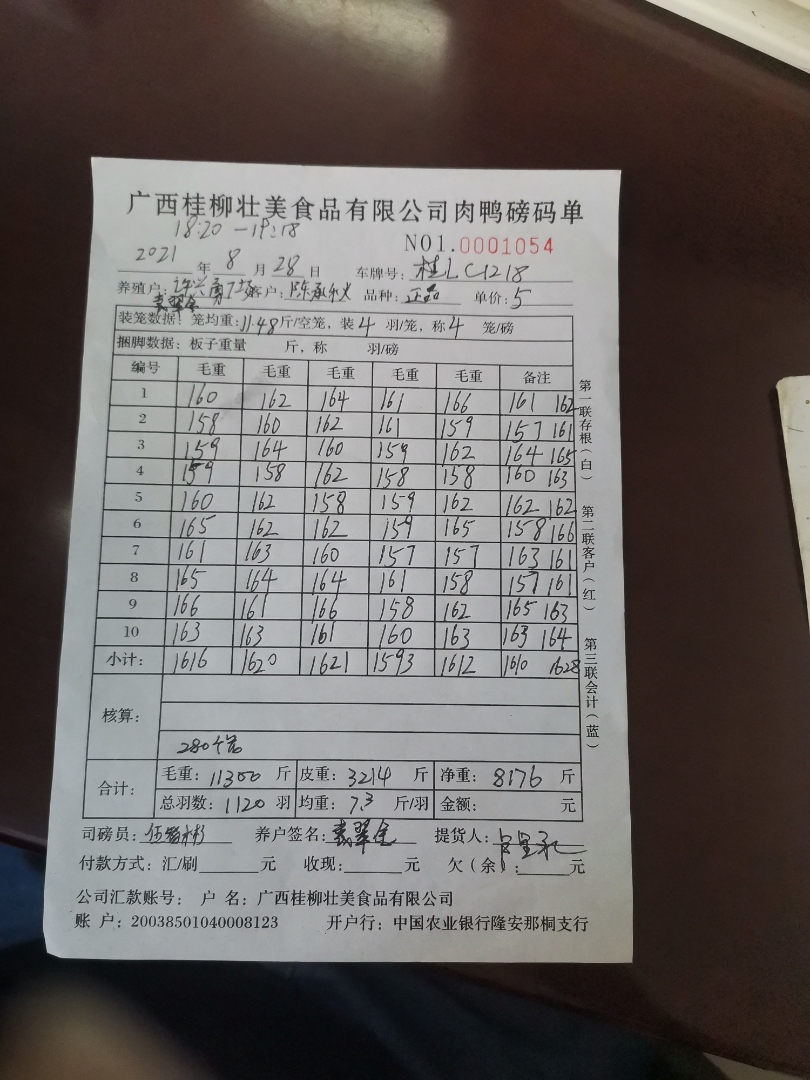 广西桂柳壮美食品有限公司肉鸭磅码单
18:20-19:18
NO1.0001054
2021年8月28日 车牌号:桂LC1218
养殖户:许兴勇丁场 客户:陈承秋 品种:正品 单价:5
袁翠金
装笼数据:笼均重:11.48斤/空笼,装4羽/笼,称4笼/磅
捆脚数据:板子重量 斤,称 羽/磅
编号 毛重 毛重 毛重 毛重 毛重 备注
1 160 162 164 161 166 161 162
2 158 160 162 161 159 157 161
3 159 164 160 159 162 164 165
4 159 158 162 158 158 160 163
5 160 162 158 159 162 162 162
6 165 162 162 159 165 158 166
7 161 163 160 157 157 163 161
8 165 164 164 161 158 157 161
9 166 161 166 158 162 165 163
10 163 163 161 160 163 163 164
小计: 1616 1620 1621 1593 1612 1610 1628
核算:
280个笼
合计: 毛重:11300斤 皮重:3214斤 净重:8176斤
总羽数:1120羽 均重:7.3斤/羽 金额: 元
司磅员: 养户签名:袁翠金 提货人:
付款方式:汇/刷 元 收现: 元 欠(余): 元
公司汇款账号: 户 名:广西桂柳壮美食品有限公司
账 户:20038501040008123 开户行:中国农业银行隆安那桐支行
第一联存根(白)
第二联客户(红)
第三联会计(蓝)